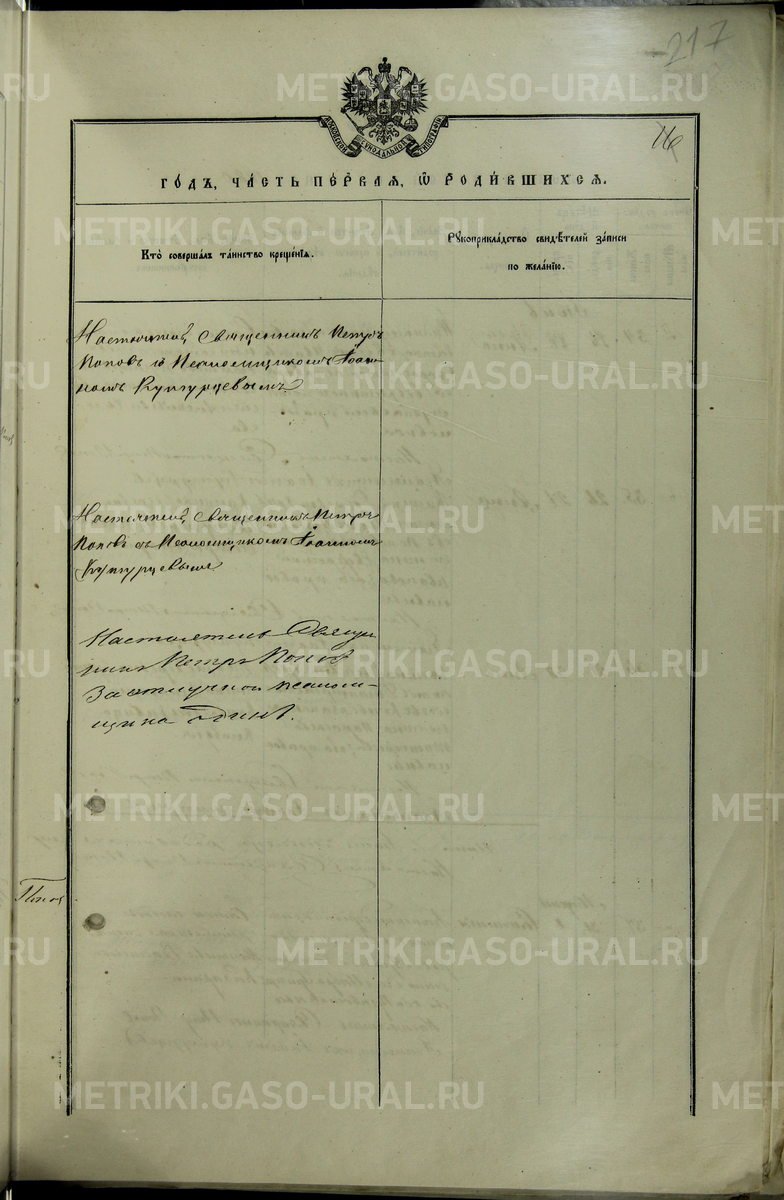 217
16
МОСКОВСКОЙ СѴНОДАЛЬНОЙ ТИПОГРАФІИ
ГО́ДЪ, ЧА́СТЬ ПЕ́РВАЯ, Ѡ РОДИ́ВШИХСЯ.
Кто̀ совершалъ та́инство креще́нїя.
Рꙋкоприкла́дство свидѣ́телей за́писи
по жела́нїю.
Настоятель Священникъ Петръ
Поповъ съ Псаломщикомъ Іоан-
номъ Кунгурцевымъ
Настоятель Священникъ Петръ
Поповъ съ Псаломщикомъ Іоанномъ
Кунгурцевымъ
Настоятель Священ
никъ Петръ Попов
За отлучкой псалом-
щика один.
Попов
METRIKI.GASO-URAL.RU